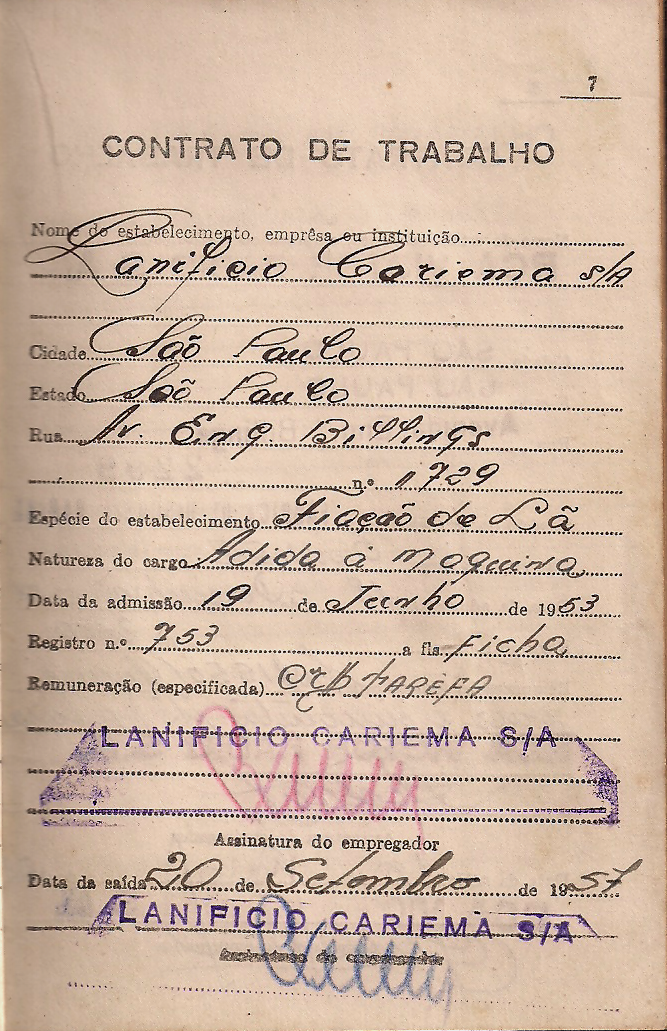 7
CONTRATO DE TRABALHO
Nome do estabelecimento, emprêsa ou instituição
Lanificio Cariema S/A
Cidade São Paulo
Estado São Paulo
Rua Av. Eng. Billings
n.º 1729
Espécie do estabelecimento Fiação de Lã
Natureza do cargo Adida á maquina
Data da admissão 19 de Junho de 1953
Registro n.º 753 a fls. Ficha
Remuneração (especificada) TAREFA
LANIFICIO CARIEMA S/A
Assinatura do empregador
Data da saída 20 de Setembro de 1957
LANIFICIO CARIEMA S/A
Assinatura do empregador